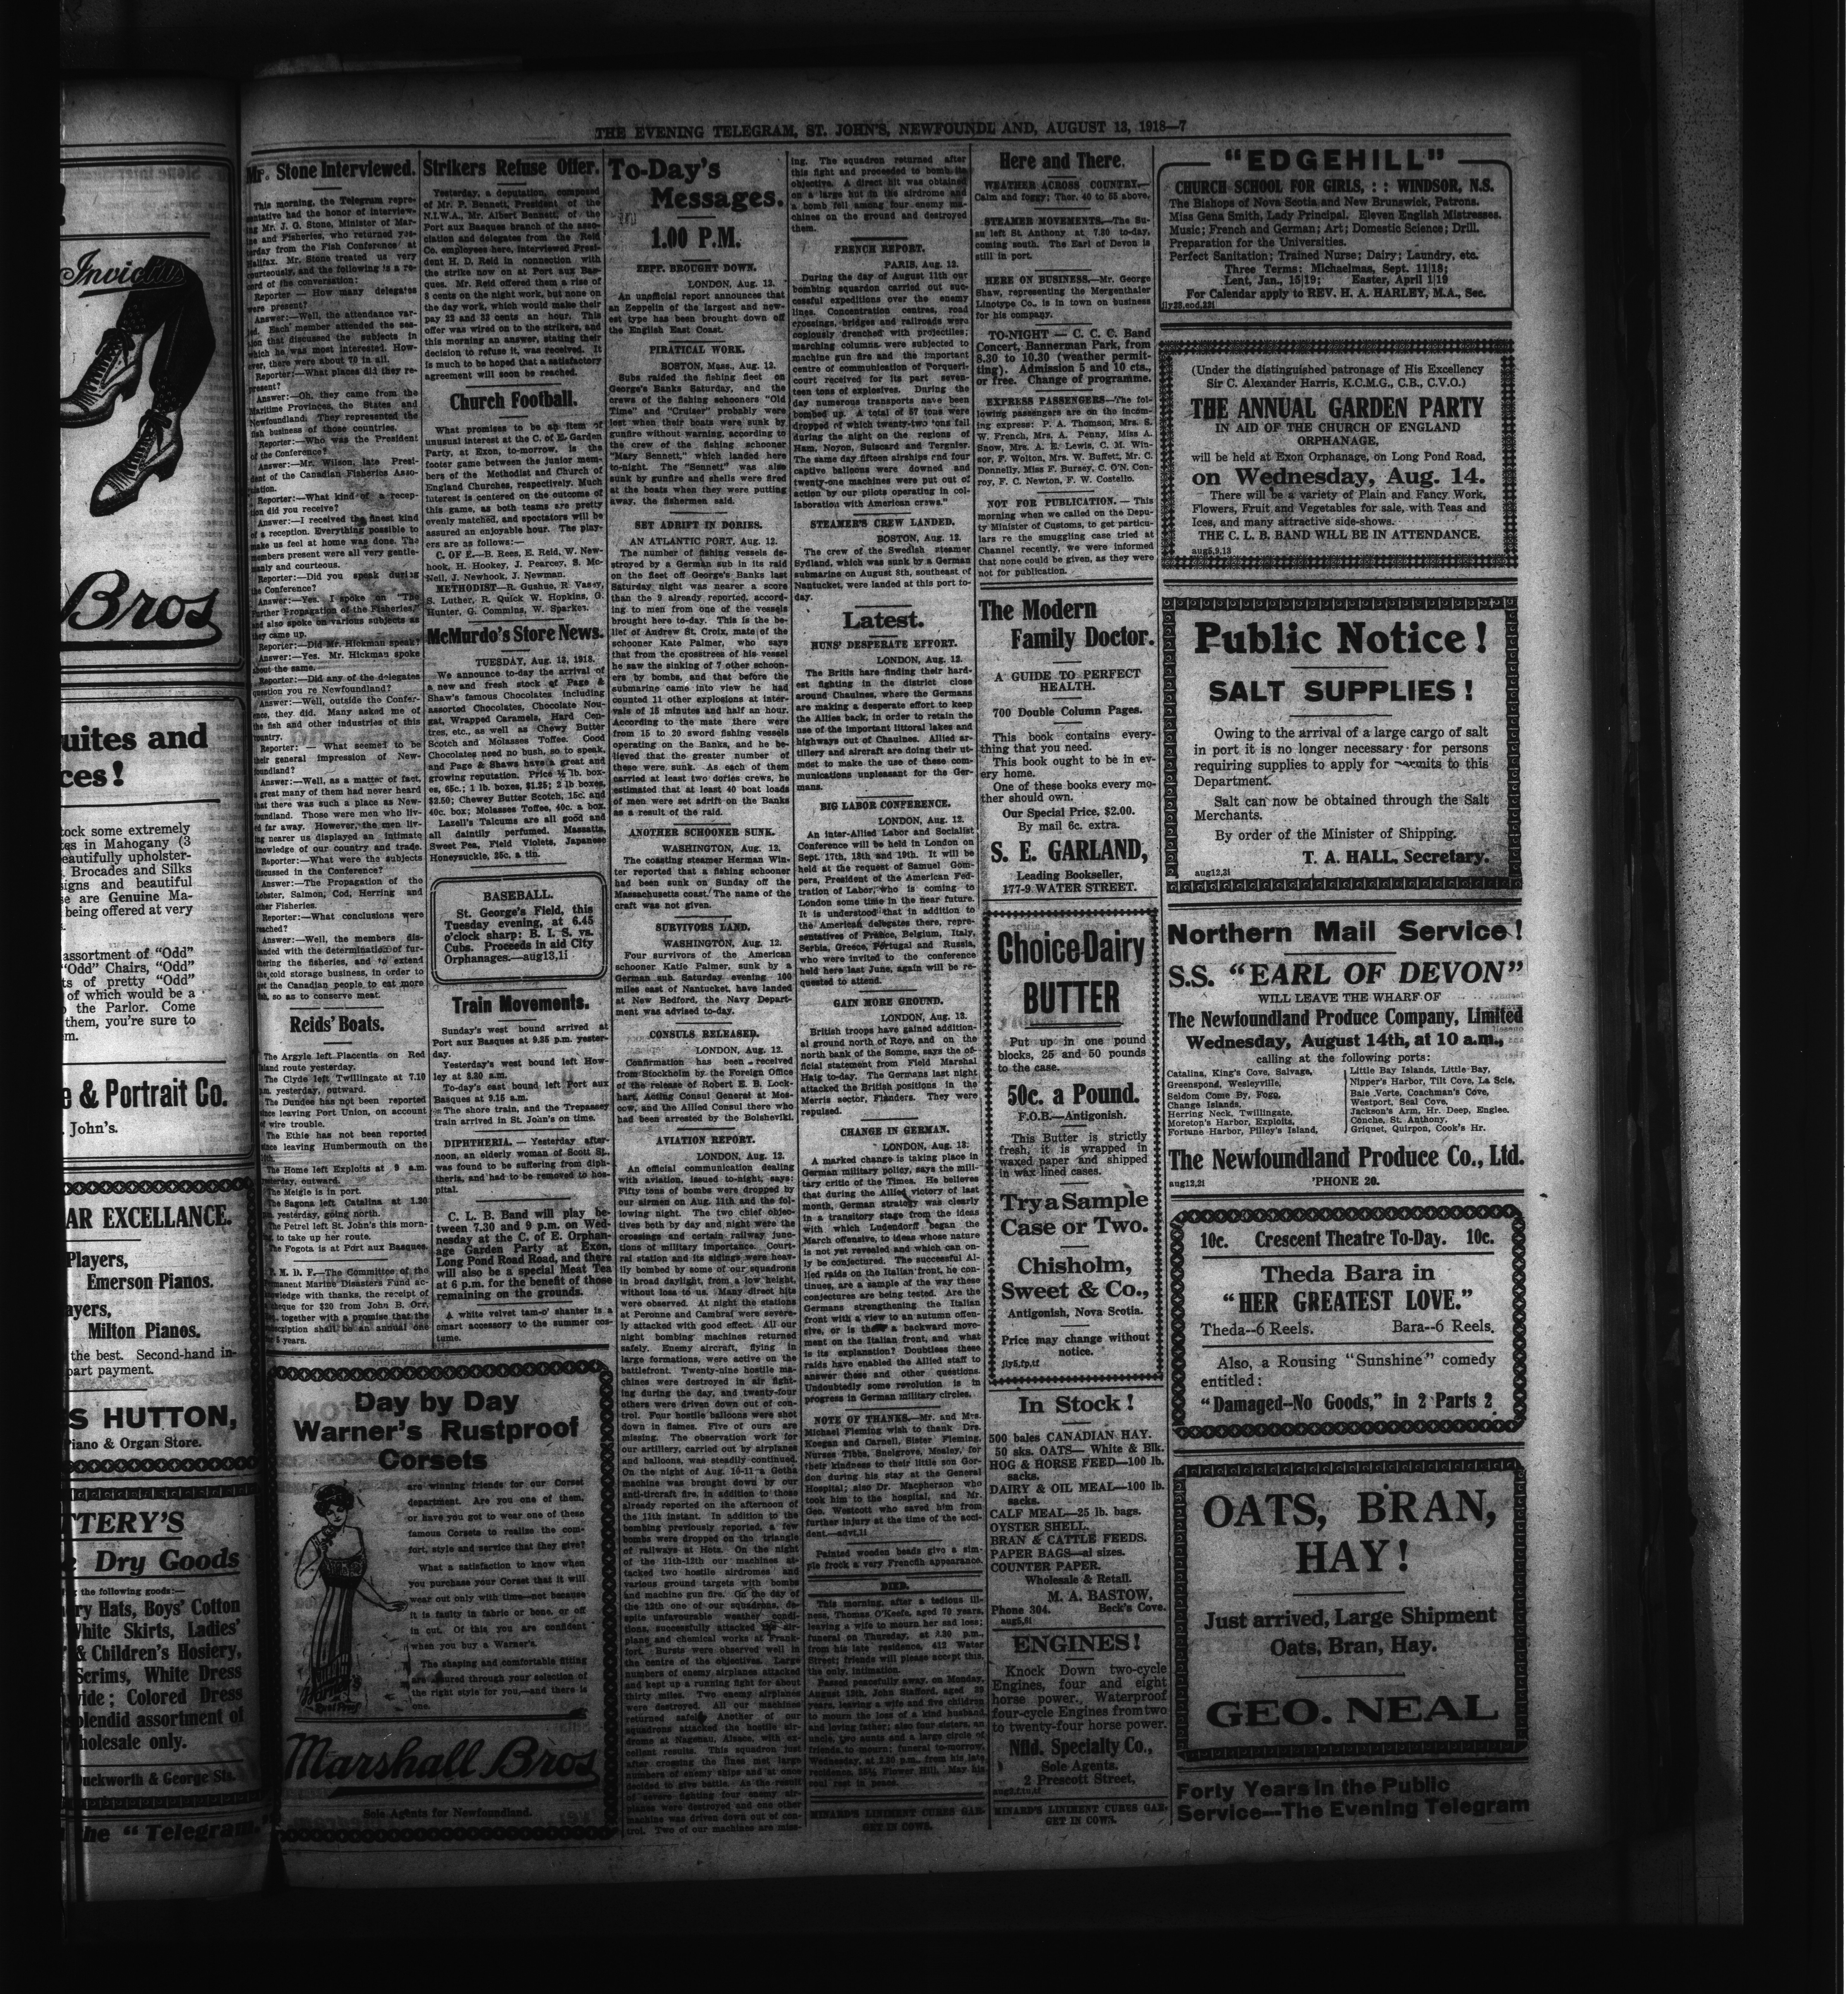 THE EVENING TELEGRAM, ST. JOHN'S, NEWFOUNDLAND, AUGUST 13, 1918—7
Invictus
Bros
uites and
ces!
tock some extremely
es in Mahogany (3
eautifully upholster-
Brocades and Silks
signs and beautiful
se are Genuine Ma-
being offered at very
assortment of "Odd"
"Odd" Chairs, "Odd"
ts of pretty "Odd"
of which would be a
the Parlor. Come
them, you're sure to
m.
e & Portrait Co.
John's.
AR EXCELLANCE.
Players,
Emerson Pianos.
ayers,
Milton Pianos.
the best. Second-hand in-
part payment.
S HUTTON,
Piano & Organ Store.
TTERY'S
Dry Goods
the following goods:—
ry Hats, Boys' Cotton
White Skirts, Ladies'
& Children's Hosiery,
Scrims, White Dress
wide; Colored Dress
plendid assortment of
Wholesale only.
uckworth & George Sts.
the "Telegram."
Mr. Stone Interviewed.
This morning, the Telegram repre-
sentative had the honor of interview-
ing Mr. J. G. Stone, Minister of Mar-
ine and Fisheries, who returned yes-
terday from the Fish Conference at
Halifax. Mr. Stone treated us very
courteously, and the following is a re-
cord of the conversation:
Reporter — How many delegates
were present?
Answer:—Well, the attendance var-
ied. Each member attended the ses-
sion that discussed the subjects in
which he was most interested. How-
ever, there were about 70 in all.
Reporter:—What places did they re-
present?
Answer:—Oh, they came from the
Maritime Provinces, the States and
Newfoundland. They represented the
fish business of those countries.
Reporter:—Who was the President
of the Conference?
Answer:—Mr. Wilson, late Presi-
dent of the Canadian Fisheries Asso-
ciation.
Reporter:—What kind of a recep-
tion did you receive?
Answer:—I received the finest kind
of a reception. Everything possible to
make us feel at home was done. The
members present were all very gentle-
manly and courteous.
Reporter:—Did you speak during
the Conference?
Answer:—Yes. I spoke on "The
Further Propagation of the Fisheries,"
and also spoke on various subjects as
they came up.
Reporter:—Did Mr. Hickman speak?
Answer:—Yes. Mr. Hickman spoke
about the same.
Reporter:—Did any of the delegates
question you re Newfoundland?
Answer:—Well, outside the Confer-
ence, they did. Many asked me of
the fish and other industries of this
country.
Reporter: — What seemed to be
their general impression of New-
foundland?
Answer:—Well, as a matter of fact,
a great many of them had never heard
that there was such a place as New-
foundland. Those were men who liv-
ed far away. However, the men liv-
ing nearer us displayed an intimate
knowledge of our country and trade.
Reporter:—What were the subjects
discussed in the Conference?
Answer:—The Propagation of the
Lobster, Salmon, Cod, Herring and
other Fisheries.
Reporter:—What conclusions were
reached?
Answer:—Well, the members dis-
banded with the determination of fur-
thering the fisheries, and to extend
the cold storage business, in order to
get the Canadian people to eat more
fish, so as to conserve meat.
Reids' Boats.
The Argyle left Placentia on Red
Island route yesterday.
The Clyde left Twillingate at 7.10
a.m. yesterday, outward.
The Dundee has not been reported
since leaving Port Union, on account
of wire trouble.
The Ethie has not been reported
since leaving Humbermouth on the
The Home left Exploits at 9 a.m.
yesterday, outward.
The Meigle is in port.
The Sagona left Catalina at 1.20
p.m. yesterday, going north.
The Petrel left St. John's this morn-
ing, to take up her route.
The Fogota is at Port aux Basques.
P. M. D. F.—The Committee of the
Permanent Marine Disasters Fund ac-
knowledge with thanks, the receipt of
cheque for $20 from John B. Orr,
together with a promise that the
subscription shall be an annual one
for 5 years.
Strikers Refuse Offer.
Yesterday, a deputation, composed
of Mr. P. Bennett, President of the
N.I.W.A., Mr. Albert Bennett, of the
Port aux Basques branch of the asso-
ciation and delegates from the Reid
Co. employees here, interviewed Presi-
dent H. D. Reid in connection with
the strike now on at Port aux Bas-
ques. Mr. Reid offered them a rise of
8 cents on the night work, but none on
the day work, which would make their
pay 22 and 33 cents an hour. This
offer was wired on to the strikers, and
this morning an answer, stating their
decision to refuse it, was received. It
is much to be hoped that a satisfactory
agreement will soon be reached.
Church Football.
What promises to be an item of
unusual interest at the C. of E. Garden
Party, at Exon, to-morrow, is the
footer game between the junior mem-
bers of the Methodist and Church of
England Churches, respectively. Much
interest is centered on the outcome of
this game, as both teams are pretty
evenly matched, and spectators will be
assured an enjoyable hour. The play-
ers are as follows:—
C. OF E.—B. Rees, E. Reid, W. New-
hook, H. Hookey, J. Pearcey, S. Mc-
Neil, J. Newhook, J. Newman.
METHODIST—R. Gushue, R. Vasey,
S. Luther, R. Quick W. Hopkins, G.
Hunter, G. Commins, W. Sparkes.
McMurdo's Store News.
TUESDAY, Aug. 13, 1918.
We announce to-day the arrival of
a new and fresh stock of Page &
Shaw's famous Chocolates, including
assorted Chocolates, Chocolate Nou-
gat, Wrapped Caramels, Hard Cen-
tres, etc., as well as Chewy Butter
Scotch and Molasses Toffee. Good
Chocolates need no bush, so to speak,
and Page & Shaws have a great and
growing reputation. Price ½ lb. box-
es, 65c.; 1 lb. boxes, $1.25; 2 lb boxes,
$2.50; Chewey Butter Scotch, 15c. and
40c. box; Molasses Toffee, 40c. a box.
Lazell's Talcums are all good and
all daintily perfumed. Massatta,
Sweet Pea, Field Violets, Japanese
Honeysuckle, 25c. a tin.
BASEBALL.
St. George's Field, this
Tuesday evening, at 6.45
o'clock sharp: B. I. S. vs.
Cubs. Proceeds in aid City
Orphanages.—aug13,1i
Train Movements.
Sunday's west bound arrived at
Port aux Basques at 9.25 p.m. yester-
day.
Yesterday's west bound left How-
ley at 8.30 a.m.
To-day's east bound left Port aux
Basques at 9.15 a.m.
The shore train, and the Trepassey
train arrived in St. John's on time.
DIPHTHERIA. — Yesterday after-
noon, an elderly woman of Scott St.,
was found to be suffering from diph-
theria, and had to be removed to hos-
pital.
C. L. B. Band will play be-
tween 7.30 and 9 p.m. on Wed-
nesday at the C. of E. Orphan-
age Garden Party at Exon,
Long Pond Road Road, and there
will also be a special Meat Tea
at 6 p.m. for the benefit of those
remaining on the grounds.
A white velvet tam-o' shanter is a
smart accessory to the summer cos-
tume.
Day by Day
Warner's Rustproof
Corsets
are winning friends for our Corset
department. Are you one of them,
or have you got to wear one of these
famous Corsets to realize the com-
fort, style and service that they give?
What a satisfaction to know when
you purchase your Corset that it will
wear out only with time—not because
it is faulty in fabric or bone, or off
in cut. Of this you are confident
when you buy a Warner's.
The shaping and comfortable fitting
are assured through your selection of
the right style for you,—and there is
one.
Marshall Bros
Sole Agents for Newfoundland.
To-Day's
Messages.
1.00 P.M.
ZEPP. BROUGHT DOWN.
LONDON, Aug. 12.
An unofficial report announces that
an Zeppelin of the largest and new-
est type has been brought down off
the English East Coast.
PIRATICAL WORK.
BOSTON, Mass., Aug. 12.
Subs raided the fishing fleet on
George's Banks Saturday, and the
crews of the fishing schooners "Old
Time" and "Cruiser" probably were
lost when their boats were sunk by
gunfire without warning, according to
the crew of the fishing schooner
"Mary Sennett," which landed here
to-night. The "Sennett" was also
sunk by gunfire and shells were fired
at the boats when they were putting
away, the fishermen said.
SET ADRIFT IN DORIES.
AN ATLANTIC PORT, Aug. 12.
The number of fishing vessels de-
stroyed by a German sub in its raid
on the fleet off George's Banks last
Saturday night was nearer a score
than the 9 already reported, accord-
ing to men from one of the vessels
brought here to-day. This is the be-
lief of Andrew St. Croix, mate of the
schooner Kate Palmer, who says
that from the crosstrees of his vessel
he saw the sinking of 7 other schoon-
ers by bombs, and that before the
submarine came into view he had
counted 11 other explosions at inter-
vals of 15 minutes and half an hour.
According to the mate there were
from 15 to 20 sword fishing vessels
operating on the Banks, and he be-
lieved that the greater number of
these were sunk. As each of them
carried at least two dories crews, he
estimated that at least 40 boat loads
of men were set adrift on the Banks
as a result of the raid.
ANOTHER SCHOONER SUNK.
WASHINGTON, Aug. 12.
The coasting steamer Herman Win-
ter reported that a fishing schooner
had been sunk on Sunday off the
Massachusetts coast. The name of the
craft was not given.
SURVIVORS LAND.
WASHINGTON, Aug. 12.
Four survivors of the American
schooner Katie Palmer, sunk by a
German sub. Saturday evening 160
miles east of Nantucket, have landed
at New Bedford, the Navy Depart-
ment was advised to-day.
CONSULS RELEASED.
LONDON, Aug. 12.
Confirmation has been received
from Stockholm by the Foreign Office
of the release of Robert E. B. Lock-
hart, Acting Consul General at Mos-
cow, and the Allied Consul there who
had been arrested by the Bolsheviki.
AVIATION REPORT.
LONDON, Aug. 12.
An official communication dealing
with aviation, issued to-night, says:
Fifty tons of bombs were dropped by
our airmen on Aug. 11th and the fol-
lowing night. The two chief objec-
tives both by day and night were the
crossings and certain railway junc-
tions of military importance. Court-
rai station and its sidings were heav-
ily bombed by some of our squadrons
in broad daylight, from a low height,
without loss to us. Many direct hits
were observed. At night the stations
at Peronne and Cambrai were severe-
ly attacked with good effect. All our
night bombing machines returned
safely. Enemy aircraft, flying in
large formations, were active on the
battlefront. Twenty-nine hostile ma-
chines were destroyed in air fight-
ing during the day, and twenty-four
others were driven down out of con-
trol. Four hostile balloons were shot
down in flames. Five of ours are
missing. The observation work for
our artillery, carried out by airplanes
and balloons, was steadily continued.
On the night of Aug. 10-11 a Gotha
machine was brought down by our
anti-tircraft fire, in addition to those
already reported on the afternoon of
the 11th instant. In addition to the
bombing previously reported, a few
bombs were dropped on the triangle
of railways at Hotz. On the night
of the 11th-12th our machines at-
tacked two hostile airdromes and
various ground targets with bombs
and machine gun fire. On the day of
the 12th one of our squadrons, de-
spite unfavourable weather condi-
tions, successfully attacked the air-
plane and chemical works at Frank-
fort. Bursts were observed well in
the centre of the objectives. Large
numbers of enemy airplanes attacked
and kept up a running fight for about
thirty miles. Two enemy airplanes
were destroyed. All our machines
returned safely. Another of our
squadrons attacked the hostile air-
drome at Hagenau, Alsace, with ex-
cellent results. This squadron just
after crossing the lines met large
numbers of enemy ships and at once
decided to give battle. As the result
of severe fighting four enemy air-
planes were destroyed and one other
machine was driven down out of con-
trol. Two of our machines are miss-
ing. The squadron returned after
this fight and proceeded to bomb its
objective. A direct hit was obtained
on a large hut in the airdrome and
a bomb fell among four enemy ma-
chines on the ground and destroyed
them.
FRENCH REPORT.
PARIS, Aug. 12.
During the day of August 11th our
bombing squardon carried out suc-
cessful expeditions over the enemy
lines. Concentration centres, road
crossings, bridges and railroads were
copiously drenched with projectiles;
marching columns were subjected to
machine gun fire and the important
centre of communication of Porqueri-
court received for its part seven-
teen tons of explosives. During the
day numerous transports have been
bombed up. A total of 57 tons were
dropped of which twenty-two tons fell
during the night on the regions of
Ham, Noyon, Guiscard and Tergnier.
The same day fifteen airships and four
captive balloons were downed and
twenty-one machines were put out of
action by our pilots operating in col-
laboration with American crews."
STEAMER'S CREW LANDED.
BOSTON, Aug. 12.
The crew of the Swedish steamer
Sydland, which was sunk by a German
submarine on August 8th, southeast of
Nantucket, were landed at this port to-
day.
Latest.
HUNS' DESPERATE EFFORT.
LONDON, Aug. 12.
The Britis hare finding their hard-
est fighting in the district close
around Chaulnes, where the Germans
are making a desperate effort to keep
the Allies back, in order to retain the
use of the important littoral lakes and
highways out of Chaulnes. Allied ar-
tillery and aircraft are doing their ut-
most to make the use of these com-
munications unpleasant for the Ger-
mans.
BIG LABOR CONFERENCE.
LONDON, Aug. 12.
An inter-Allied Labor and Socialist
Conference will be held in London on
Sept. 17th, 18th and 19th. It will be
held at the request of Samuel Gom-
pers, President of the American Fed-
tration of Labor, who is coming to
London some time in the near future.
It is understood that in addition to
the American delegates there, repre-
sentatives of France, Belgium, Italy,
Serbia, Greece, Portugal and Russia,
who were invited to the conference
held here last June, again will be re-
quested to attend.
GAIN MORE GROUND.
LONDON, Aug. 13.
British troops have gained addition-
al ground north of Roye, and on the
north bank of the Somme, says the of-
ficial statement from Field Marshal
Haig to-day. The Germans last night
attacked the British positions in the
Merris sector, Flanders. They were
repulsed.
CHANGE IN GERMAN.
LONDON, Aug. 13.
A marked change is taking place in
German military policy, says the mili-
tary critic of the Times. He believes
that during the Allied victory of last
month, German strategy was clearly
in a transitory stage from the ideas
with which Ludendorff began the
March offensive, to ideas whose nature
is not yet revealed and which can on-
ly be conjectured. The successful Al-
lied raids on the Italian front, he con-
tinues, are a sample of the way these
conjectures are being tested. Are the
Germans strengthening the Italian
front with a view to an autumn offen-
sive, or is there a backward move-
ment on the Italian front, and what
is its explanation? Doubtless these
raids have enabled the Allied staff to
answer these and other questions.
Undoubtedly some revolution is in
progress in German military circles.
NOTE OF THANKS.—Mr. and Mrs.
Michael Fleming wish to thank Drs.
Keegan and Carnell, Sister Fleming,
Nurses Tibbs, Snelgrove, Mosley, for
their kindness to their little son Gor-
don during his stay at the General
Hospital; also Dr. Macpherson who
took him to the hospital, and Mr.
Geo. Westcott who saved him from
further injury at the time of the acci-
dent.—advt,1i
Painted wooden beads give a sim-
ple frock a very Frencdh appearance.
DIED.
This morning, after a tedious ill-
ness, Thomas O'Keefe, aged 70 years,
leaving a wife to mourn her sad loss;
funeral on Thursday, at 2.30 p.m.,
from his late residence, 412 Water
Street; friends will please accept this,
the only, intimation.
Passed peacefully away, on Monday,
August 12th, John Stafford, aged 29
years, leaving a wife and five children
to mourn the loss of a kind husband
and loving father; also four sisters, an
uncle, two aunts and a large circle of
friends to mourn; funeral to-morrow,
Wednesday, at 2.30 p.m., from his late
residence, 25½ Flower Hill. May his
soul rest in peace.
MINARD'S LINIMENT CURES GAR-
GET IN COWS.
Here and There.
WEATHER ACROSS COUNTRY.—
Calm and foggy; Ther. 40 to 55 above.
STEAMER MOVEMENTS.—The Su-
su left St. Anthony at 7.20 to-day,
coming south. The Earl of Devon is
still in port.
HERE ON BUSINESS.—Mr. George
Shaw, representing the Mergenthaler
Linotype Co., is in town on business
for his company.
TO-NIGHT — C. C. C. Band
Concert, Bannerman Park, from
8.30 to 10.30 (weather permit-
ting). Admission 5 and 10 cts.,
or free. Change of programme.
EXPRESS PASSENGERS—The fol-
lowing passengers are on the incom-
ing express: P. A. Thomson, Mrs. S.
W. French, Mrs. A. Penny, Miss A.
Snow, Mrs. A. E. Lewis, C. M. Win-
sor, F. Wolton, Mrs. W. Buffett, Mr. C.
Donnelly, Miss F. Bursey, C. O'N. Con-
roy, F. C. Newton, F. W. Costello.
NOT FOR PUBLICATION. — This
morning when we called on the Depu-
ty Minister of Customs, to get particu-
lars re the smuggling case tried at
Channel recently, we were informed
that none could be given, as they were
not for publication.
The Modern
Family Doctor.
A GUIDE TO PERFECT
HEALTH.
700 Double Column Pages.
This book contains every-
thing that you need.
This book ought to be in ev-
ery home.
One of these books every mo-
ther should own.
Our Special Price, $2.00.
By mail 6c. extra.
S. E. GARLAND,
Leading Bookseller,
177-9 WATER STREET.
Choice Dairy
BUTTER
Put up in one pound
blocks, 25 and 50 pounds
to the case.
50c. a Pound.
F.O.B.—Antigonish.
This Butter is strictly
fresh, it is wrapped in
waxed paper and shipped
in wax lined cases.
Try a Sample
Case or Two.
Chisholm,
Sweet & Co.,
Antigonish, Nova Scotia.
Price may change without
notice.
jly5,fp,tf
In Stock!
500 bales CANADIAN HAY.
50 sks. OATS— White & Blk.
HOG & HORSE FEED—100 lb.
sacks.
DAIRY & OIL MEAL—100 lb.
sacks.
CALF MEAL—25 lb. bags.
OYSTER SHELL.
BRAN & CATTLE FEEDS.
PAPER BAGS—al sizes.
COUNTER PAPER.
Wholesale & Retail.
M. A. BASTOW,
Phone 304. Beck's Cove.
aug5,6i
ENGINES!
Knock Down two-cycle
Engines, four and eight
horse power. Waterproof
four-cycle Engines from two
to twenty-four horse power.
Nfld. Specialty Co.,
Sole Agents.
2 Prescott Street.
MINARD'S LINIMENT CURES GAR-
GET IN COWS.
"EDGEHILL"
CHURCH SCHOOL FOR GIRLS, : : WINDSOR, N.S.
The Bishops of Nova Scotia and New Brunswick, Patrons.
Miss Gena Smith, Lady Principal. Eleven English Mistresses.
Music; French and German; Art; Domestic Science; Drill.
Preparation for the Universities.
Perfect Sanitation; Trained Nurse; Dairy; Laundry, etc.
Three Terms: Michaelmas, Sept. 11|18;
Lent, Jan., 15|19; Easter, April 1|19
For Calendar apply to REV. H. A. HARLEY, M.A., Sec.
jly22,eod,22i
(Under the distinguished patronage of His Excellency
Sir C. Alexander Harris, K.C.M.G., C.B., C.V.O.)
THE ANNUAL GARDEN PARTY
IN AID OF THE CHURCH OF ENGLAND
ORPHANAGE,
will be held at Exon Orphanage, on Long Pond Road,
on Wednesday, Aug. 14.
There will be a variety of Plain and Fancy Work,
Flowers, Fruit and Vegetables for sale, with Teas and
Ices, and many attractive side-shows.
THE C. L. B. BAND WILL BE IN ATTENDANCE.
aug5,9,13
Public Notice!
SALT SUPPLIES!
Owing to the arrival of a large cargo of salt
in port it is no longer necessary for persons
requiring supplies to apply for permits to this
Department.
Salt can now be obtained through the Salt
Merchants.
By order of the Minister of Shipping.
T. A. HALL, Secretary.
aug12,3i
Northern Mail Service!
S.S. "EARL OF DEVON"
WILL LEAVE THE WHARF OF
The Newfoundland Produce Company, Limited
Wednesday, August 14th, at 10 a.m.,
calling at the following ports:
Catalina, King's Cove, Salvage,
Greenspond, Wesleyville,
Seldom Come By, Fogo,
Change Islands,
Herring Neck, Twillingate,
Moreton's Harbor, Exploits,
Fortune Harbor, Pilley's Island,
Little Bay Islands, Little Bay,
Nipper's Harbor, Tilt Cove, La Scie,
Baie Verte, Coachman's Cove,
Westport, Seal Cove,
Jackson's Arm, Hr. Deep, Englee,
Conche, St. Anthony,
Griquet, Quirpon, Cook's Hr.
The Newfoundland Produce Co., Ltd.
aug12,2i 'PHONE 20.
10c. Crescent Theatre To-Day. 10c.
Theda Bara in
"HER GREATEST LOVE."
Theda--6 Reels. Bara--6 Reels.
Also, a Rousing "Sunshine" comedy
entitled:
"Damaged--No Goods," in 2 Parts 2
OATS, BRAN,
HAY!
Just arrived, Large Shipment
Oats, Bran, Hay.
GEO. NEAL
Forty Years in the Public
Service—The Evening Telegram